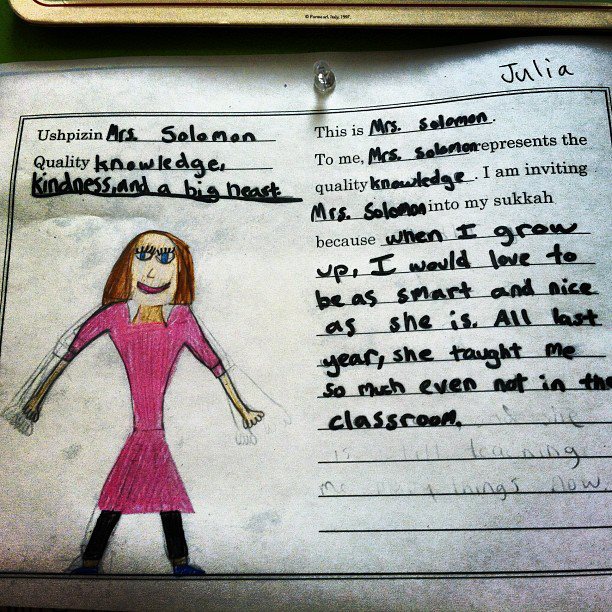 © Formarl, Italy, 1997.
Julia
Ushpizin Mrs. Solomon
Quality knowledge,
kindness, and a big heart
This is Mrs. Solomon.
To me, Mrs. Solomon represents the
quality knowledge. I am inviting
Mrs. Solomon into my sukkah
because when I grow
up, I would love to
be as smart and nice
as she is. All last
year, she taught me
so much even not in the
classroom. and she
is still teaching
me many things now.